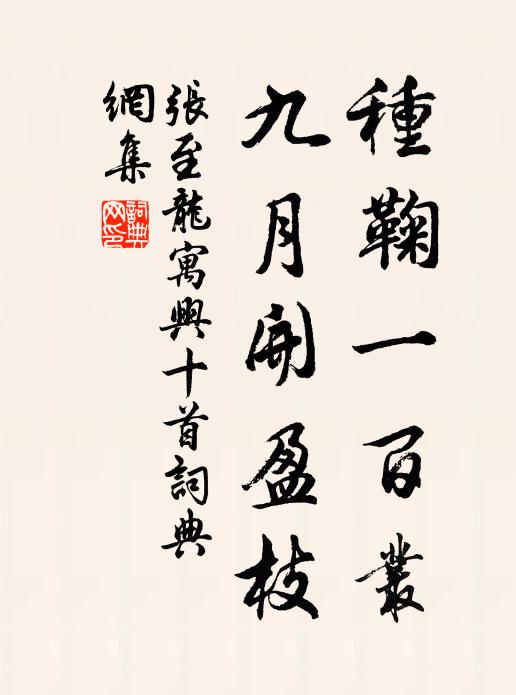 種鞠一百叢
九月開盈枝
張至龍寓興十首詞典
網集
詞典
网印